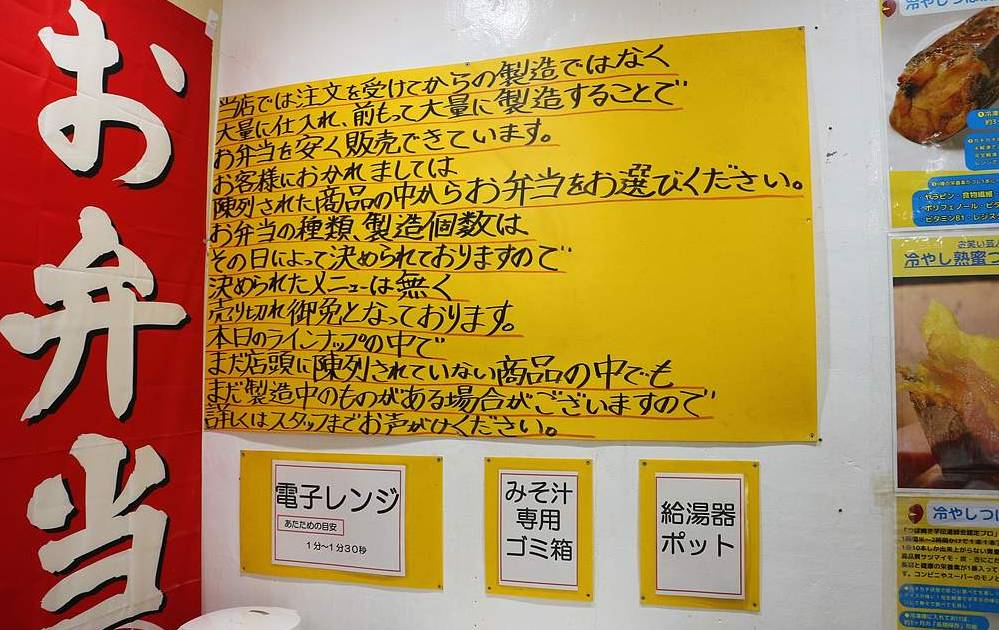 お弁当
当店では注文を受けてからの製造ではなく
大量に仕入れ、前もって大量に製造することで
お弁当を安く販売できています。
お客様におかれましては
陳列された商品の中からお弁当をお選びください。
お弁当の種類、製造個数は
その日によって決められておりますので
決められたメニューは無く
売り切れ御免となっております。
本日のラインナップの中で
まだ店頭に陳列されていない商品の中でも
まだ製造中のものがある場合がございますので
詳しくはスタッフまでお声がけください。
電子レンジ
あたための目安
1分〜1分30秒
みそ汁
専用
ゴミ箱
給湯器
ポット
ヤラピン・食物繊維
ポリフェノール・ビタ
ビタミンB1・レジス
お笑い芸
冷やし熟蜜つ
冷やしつ